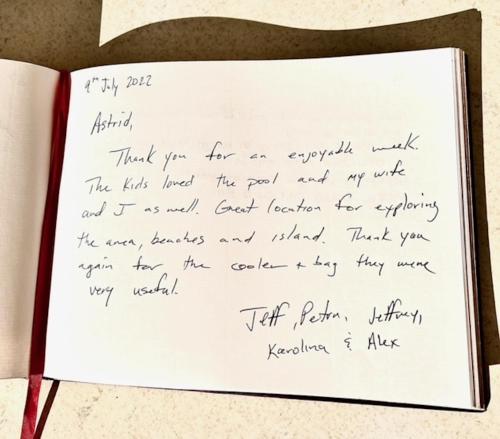 9th July 2022
Astrid,
Thank you for an enjoyable week.
The Kids loved the pool and my wife
and I as well. Great location for exploring
the area, beaches and island. Thank you
again for the cooler + bag they were
very useful.
Jeff, Petra, Jeffrey,
Karolina & Alex